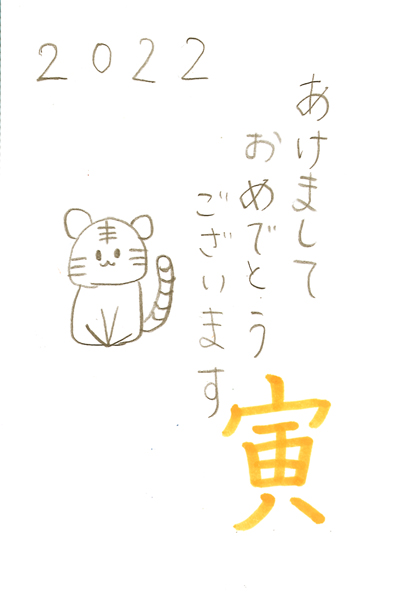 2022
あけまして
おめでとう
ございます
寅